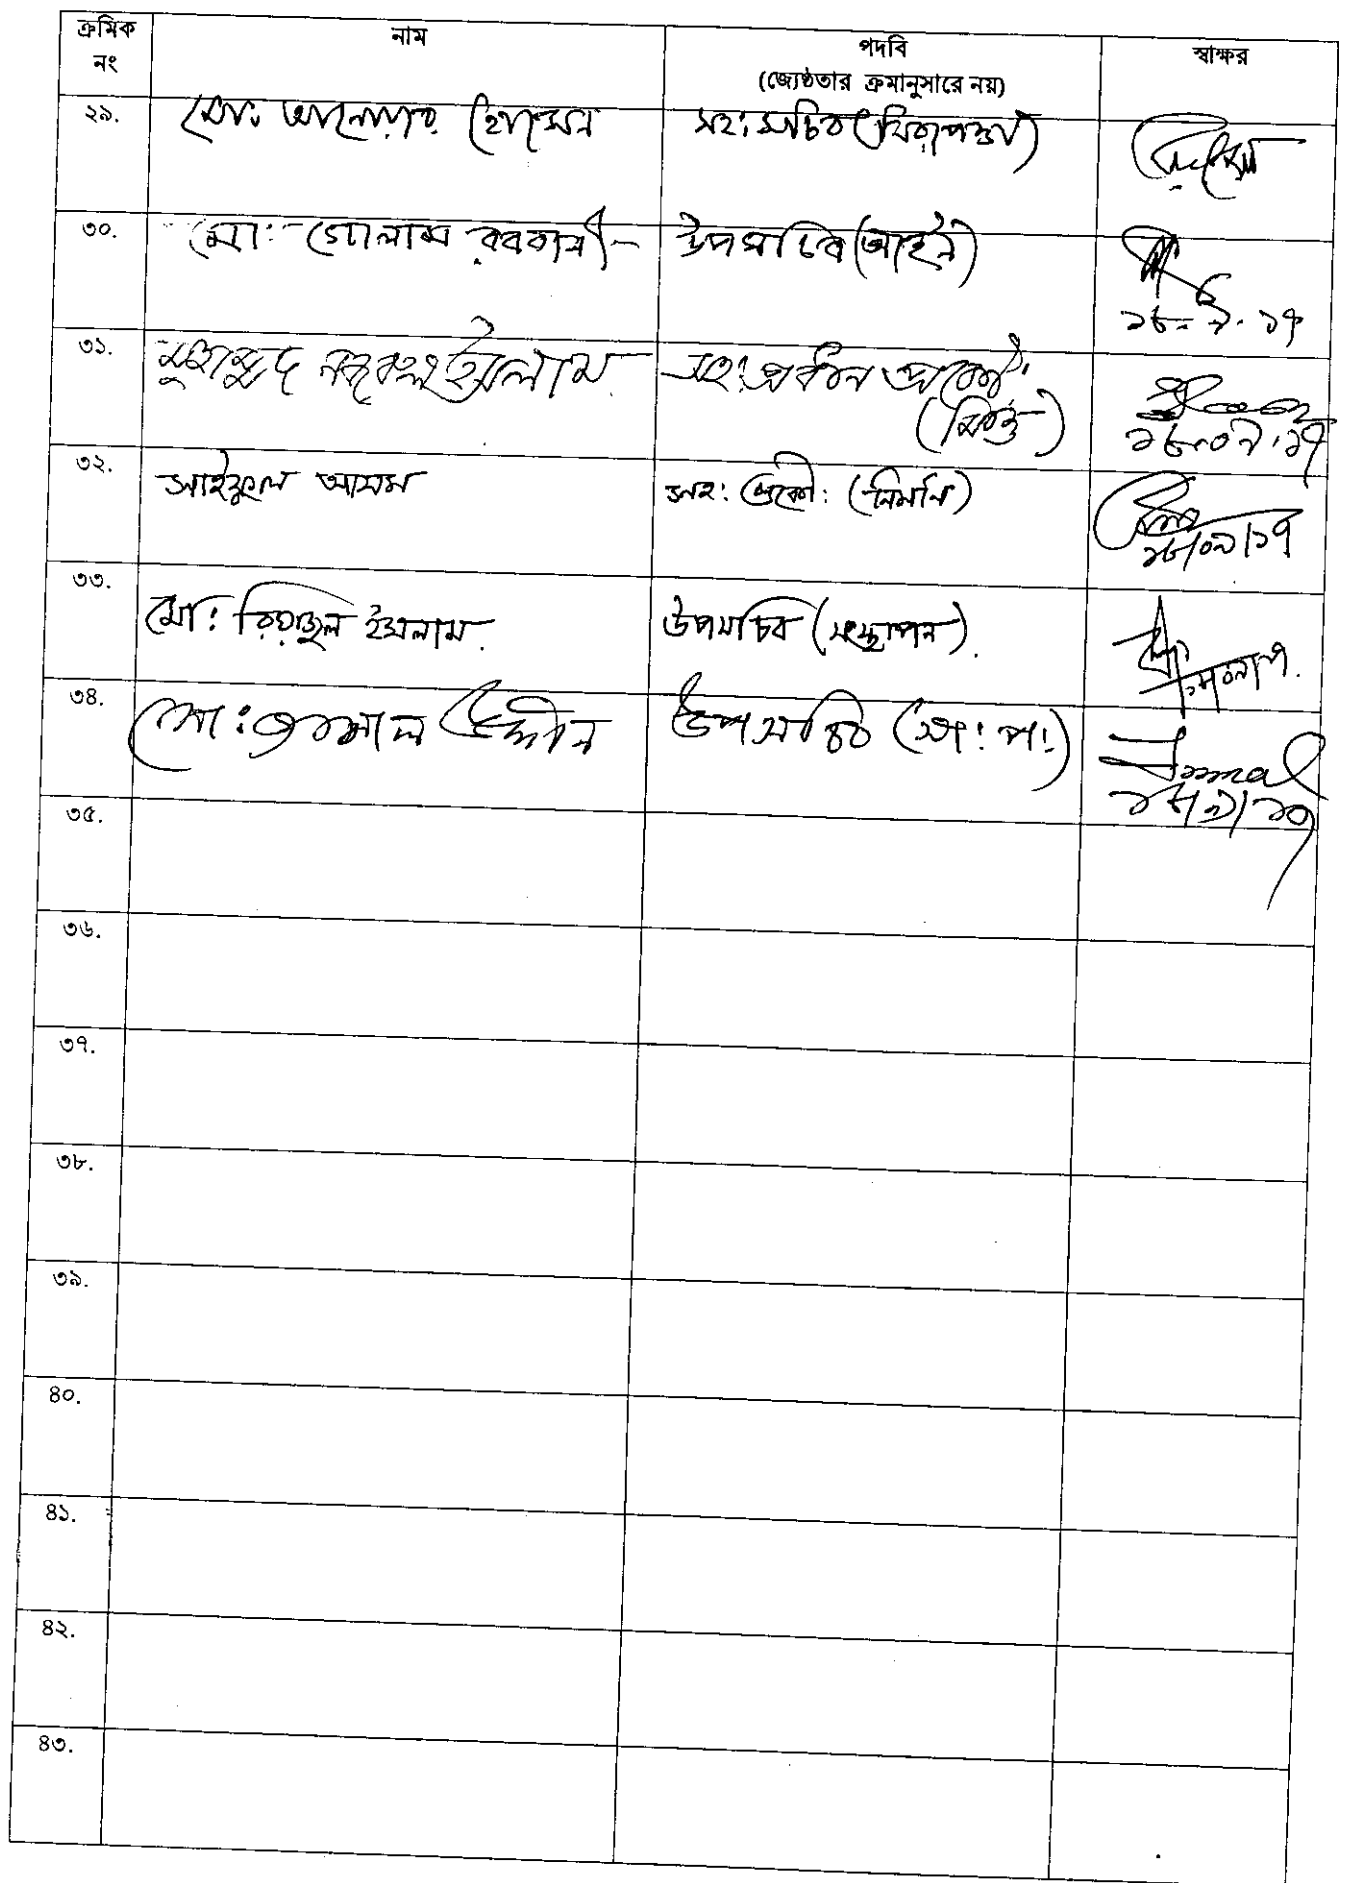 ক্রমিক নং নাম পদবি (জ্যেষ্ঠতার ক্রমানুসারে নয়) স্বাক্ষর
২৯. মো: আনোয়ার হোসেন সহ: সচিব (নিরাপত্তা)
৩০. মো: গোলাম রববানী উপসচিব (আইন) ১৮-৯-১৭
৩১. মুহাম্মদ নজরুল ইসলাম সহ: প্রধান প্রকৌ: ১৮-০৯-১৭
৩২. সাইফুল আলম সহ: প্রকৌ: (নির্মান) ১৮/০৯/১৭
৩৩. মো: রিয়াজুল ইসলাম. উপসচিব (সংস্থাপন).
৩৪. মো: জামাল উদ্দীন উপসচিব (অ: প:) Jamal ১৮/৯/১৭
৩৫.
৩৬.
৩৭.
৩৮.
৩৯.
৪০.
৪১.
৪২.
৪৩.